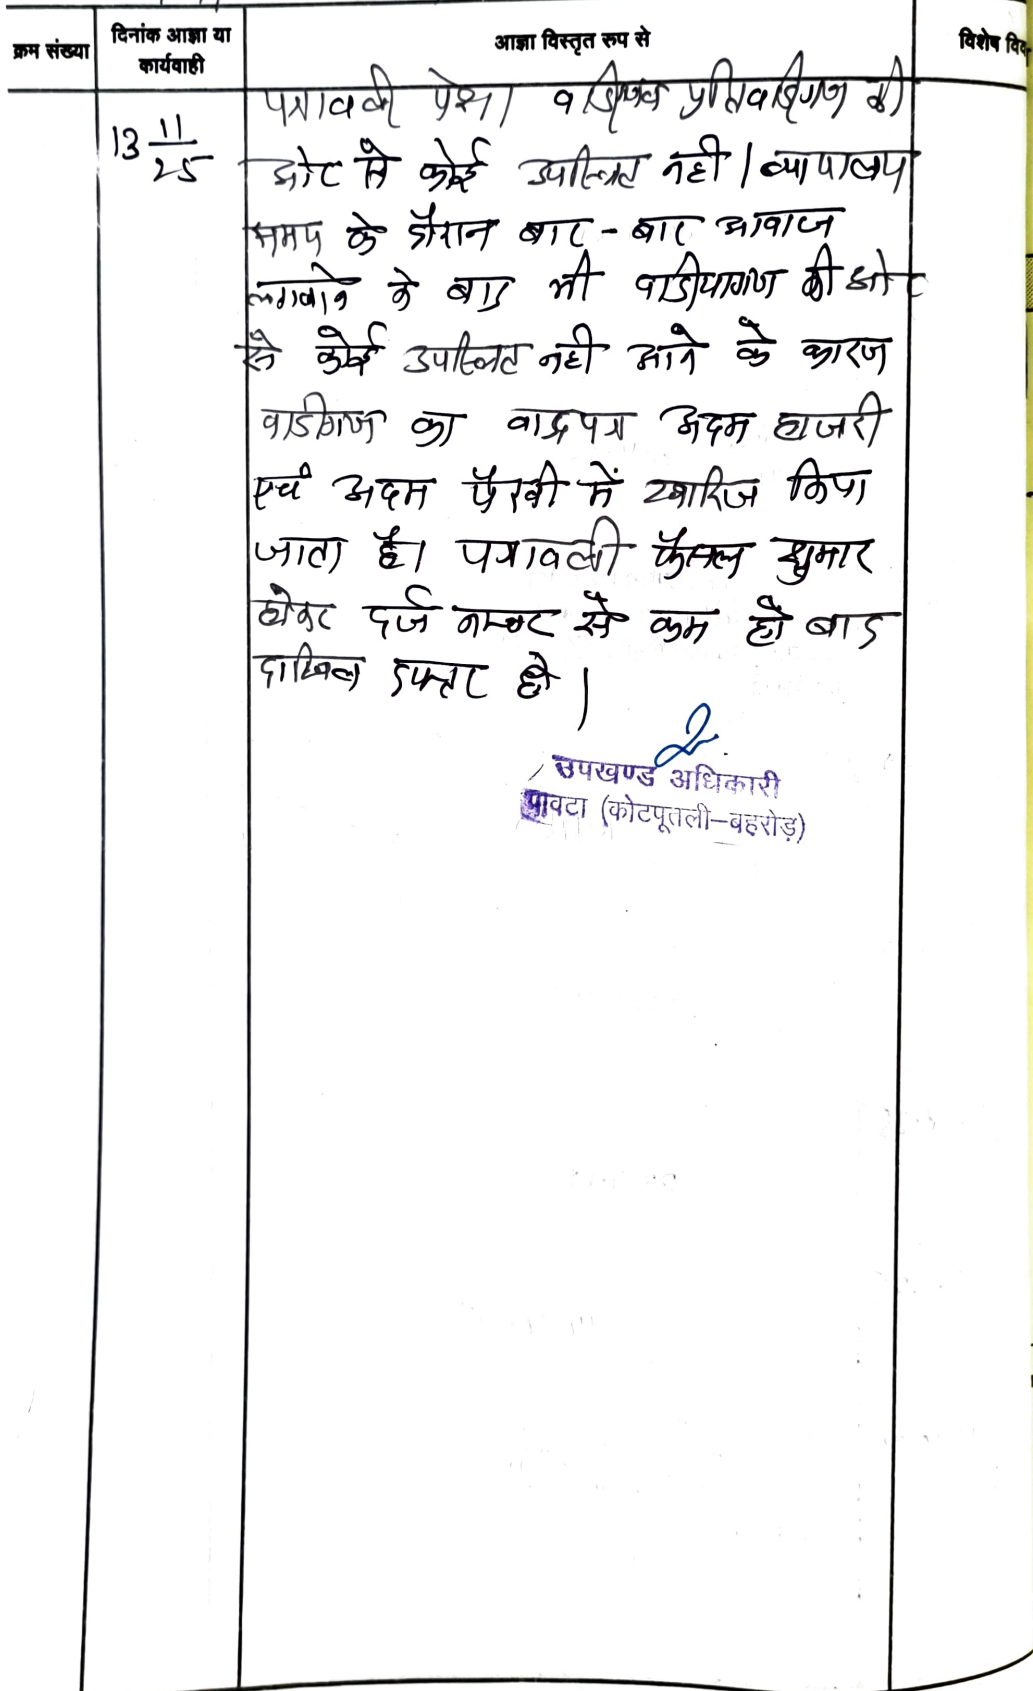 क्रम संख्या
दिनांक आज्ञा या
कार्यवाही
आज्ञा विस्तृत रुप से
विशेष विव
13 11/25
पत्रावली पेश। वादीगण प्रतिवादीगण की
ओर से कोई उपस्थित नही। न्यायालय
समय के दौरान बार-बार आवाज
लगवाने के बाद भी वादीयागण की ओर
से कोई उपस्थित नही आने के कारण
वादीगण का वादपत्र अदम हाजरी
एवं अदम पैरवी में खारिज किया
जाता है। पत्रावली फैसल शुमार
होकर दर्ज नम्बर से कम हो बाद
दाखिल दफ्तर हो।
उपखण्ड अधिकारी
पावटा (कोटपूतली-बहरोड़)